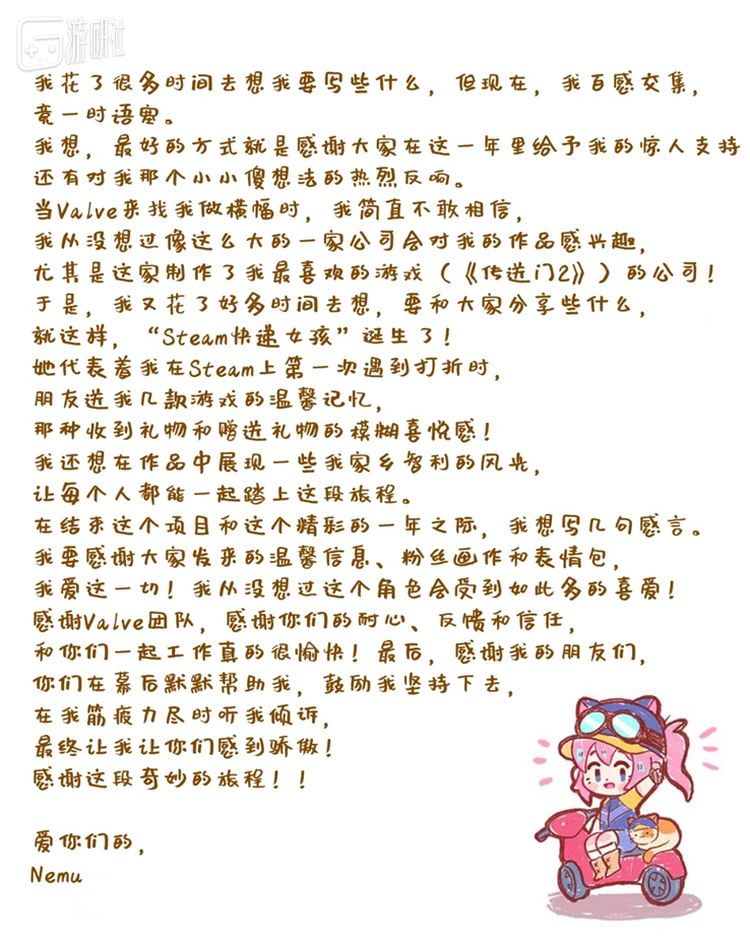 游研社
我花了很多时间去想我要写些什么，但现在，我百感交集，
竟一时语塞。
我想，最好的方式就是感谢大家在这一年里给予我的惊人支持
还有对我那个小小傻想法的热烈反响。
当Valve来找我做横幅时，我简直不敢相信，
我从没想过像这么大的一家公司会对我的作品感兴趣，
尤其是这家制作了我最喜欢的游戏（《传送门2》）的公司！
于是，我又花了好多时间去想，要和大家分享些什么，
就这样，“Steam快递女孩”诞生了！
她代表着我在Steam上第一次遇到打折时，
朋友送我几款游戏的温馨记忆，
那种收到礼物和赠送礼物的模糊喜悦感！
我还想在作品中展现一些我家乡智利的风光，
让每个人都能一起踏上这段旅程。
在结束这个项目和这个精彩的一年之际，我想写几句感言。
我要感谢大家发来的温馨信息、粉丝画作和表情包，
我爱这一切！我从没想过这个角色会受到如此多的喜爱！
感谢Valve团队，感谢你们的耐心、反馈和信任，
和你们一起工作真的很愉快！最后，感谢我的朋友们，
你们在幕后默默帮助我，鼓励我坚持下去，
在我筋疲力尽时听我倾诉，
最终让我让你们感到骄傲！
感谢这段奇妙的旅程！！
爱你们的，
Nemu